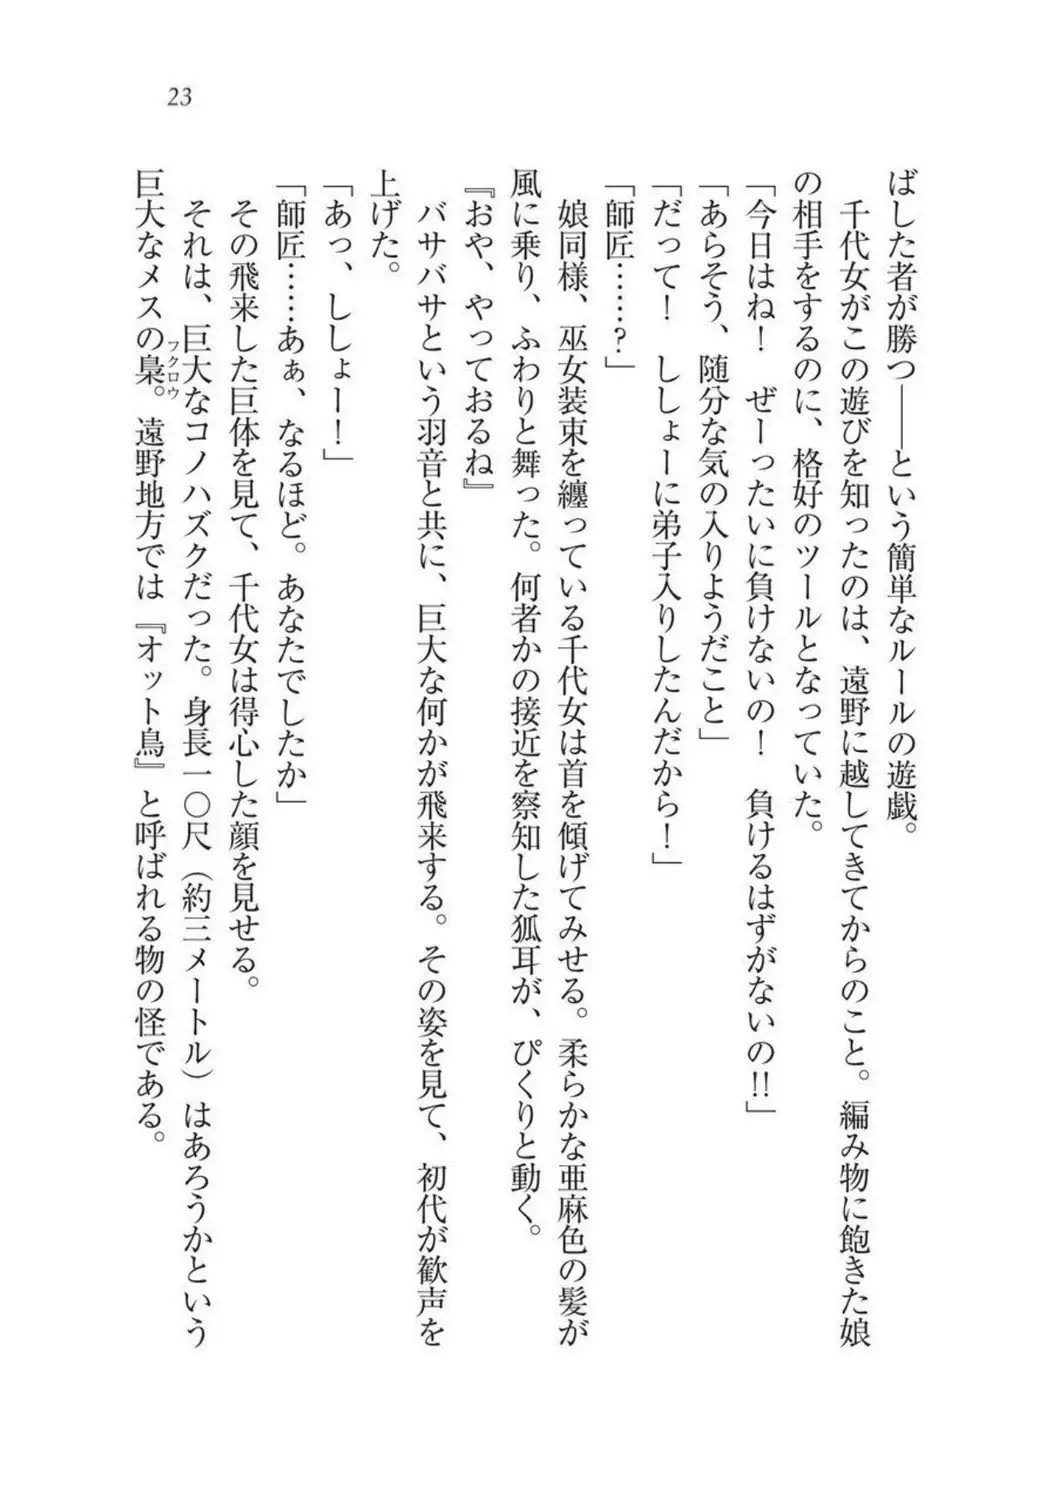 23
ばした者が勝つ――という簡単なルールの遊戯。
　千代女がこの遊びを知ったのは、遠野に越してきてからのこと。編み物に飽きた娘
の相手をするのに、格好のツールとなっていた。
「今日はね！　ぜーったいに負けないの！　負けるはずがないの!!」
「あらそう、随分な気の入りようだこと」
「だって！　ししょーに弟子入りしたんだから！」
「師匠……？」
　娘同様、巫女装束を纏っている千代女は首を傾げてみせる。柔らかな亜麻色の髪が
風に乗り、ふわりと舞った。何者かの接近を察知した狐耳が、ぴくりと動く。
『おや、やっておるね』
　バサバサという羽音と共に、巨大な何かが飛来する。その姿を見て、初代が歓声を
上げた。
「あっ、ししょー！」
「師匠……あぁ、なるほど。あなたでしたか」
　その飛来した巨体を見て、千代女は得心した顔を見せる。
　それは、巨大なコノハズクだった。身長一〇尺（約三メートル）はあろうかという
巨大なメスの梟。遠野地方では『オット鳥』と呼ばれる物の怪である。
フクロウ